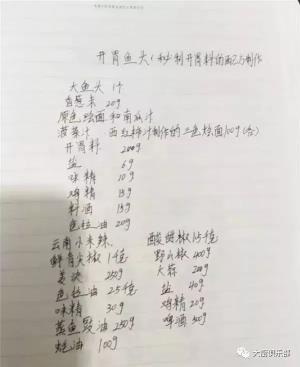 开胃鱼头(和秘制开胃料的配比与制作
大鱼头 1个
香葱末 20g
原色烩面和南瓜汁
菠菜汁 西红柿汁制作的三色烩面100g(各)
开胃料 200g
盐 6g
味精 10g
鸡精 15g
料酒 15g
色拉油 20g
云南小米辣 酸甜椒 1.5千克
鲜青尖椒 1千克 野山椒 400g
姜块 250g 大蒜 200g
色拉油 2.5千克 盐 40g
味精 30g 鸡精 20g
蓝鱼豉油 250g 啤酒 500g
蚝油 100g
大厨俱乐部